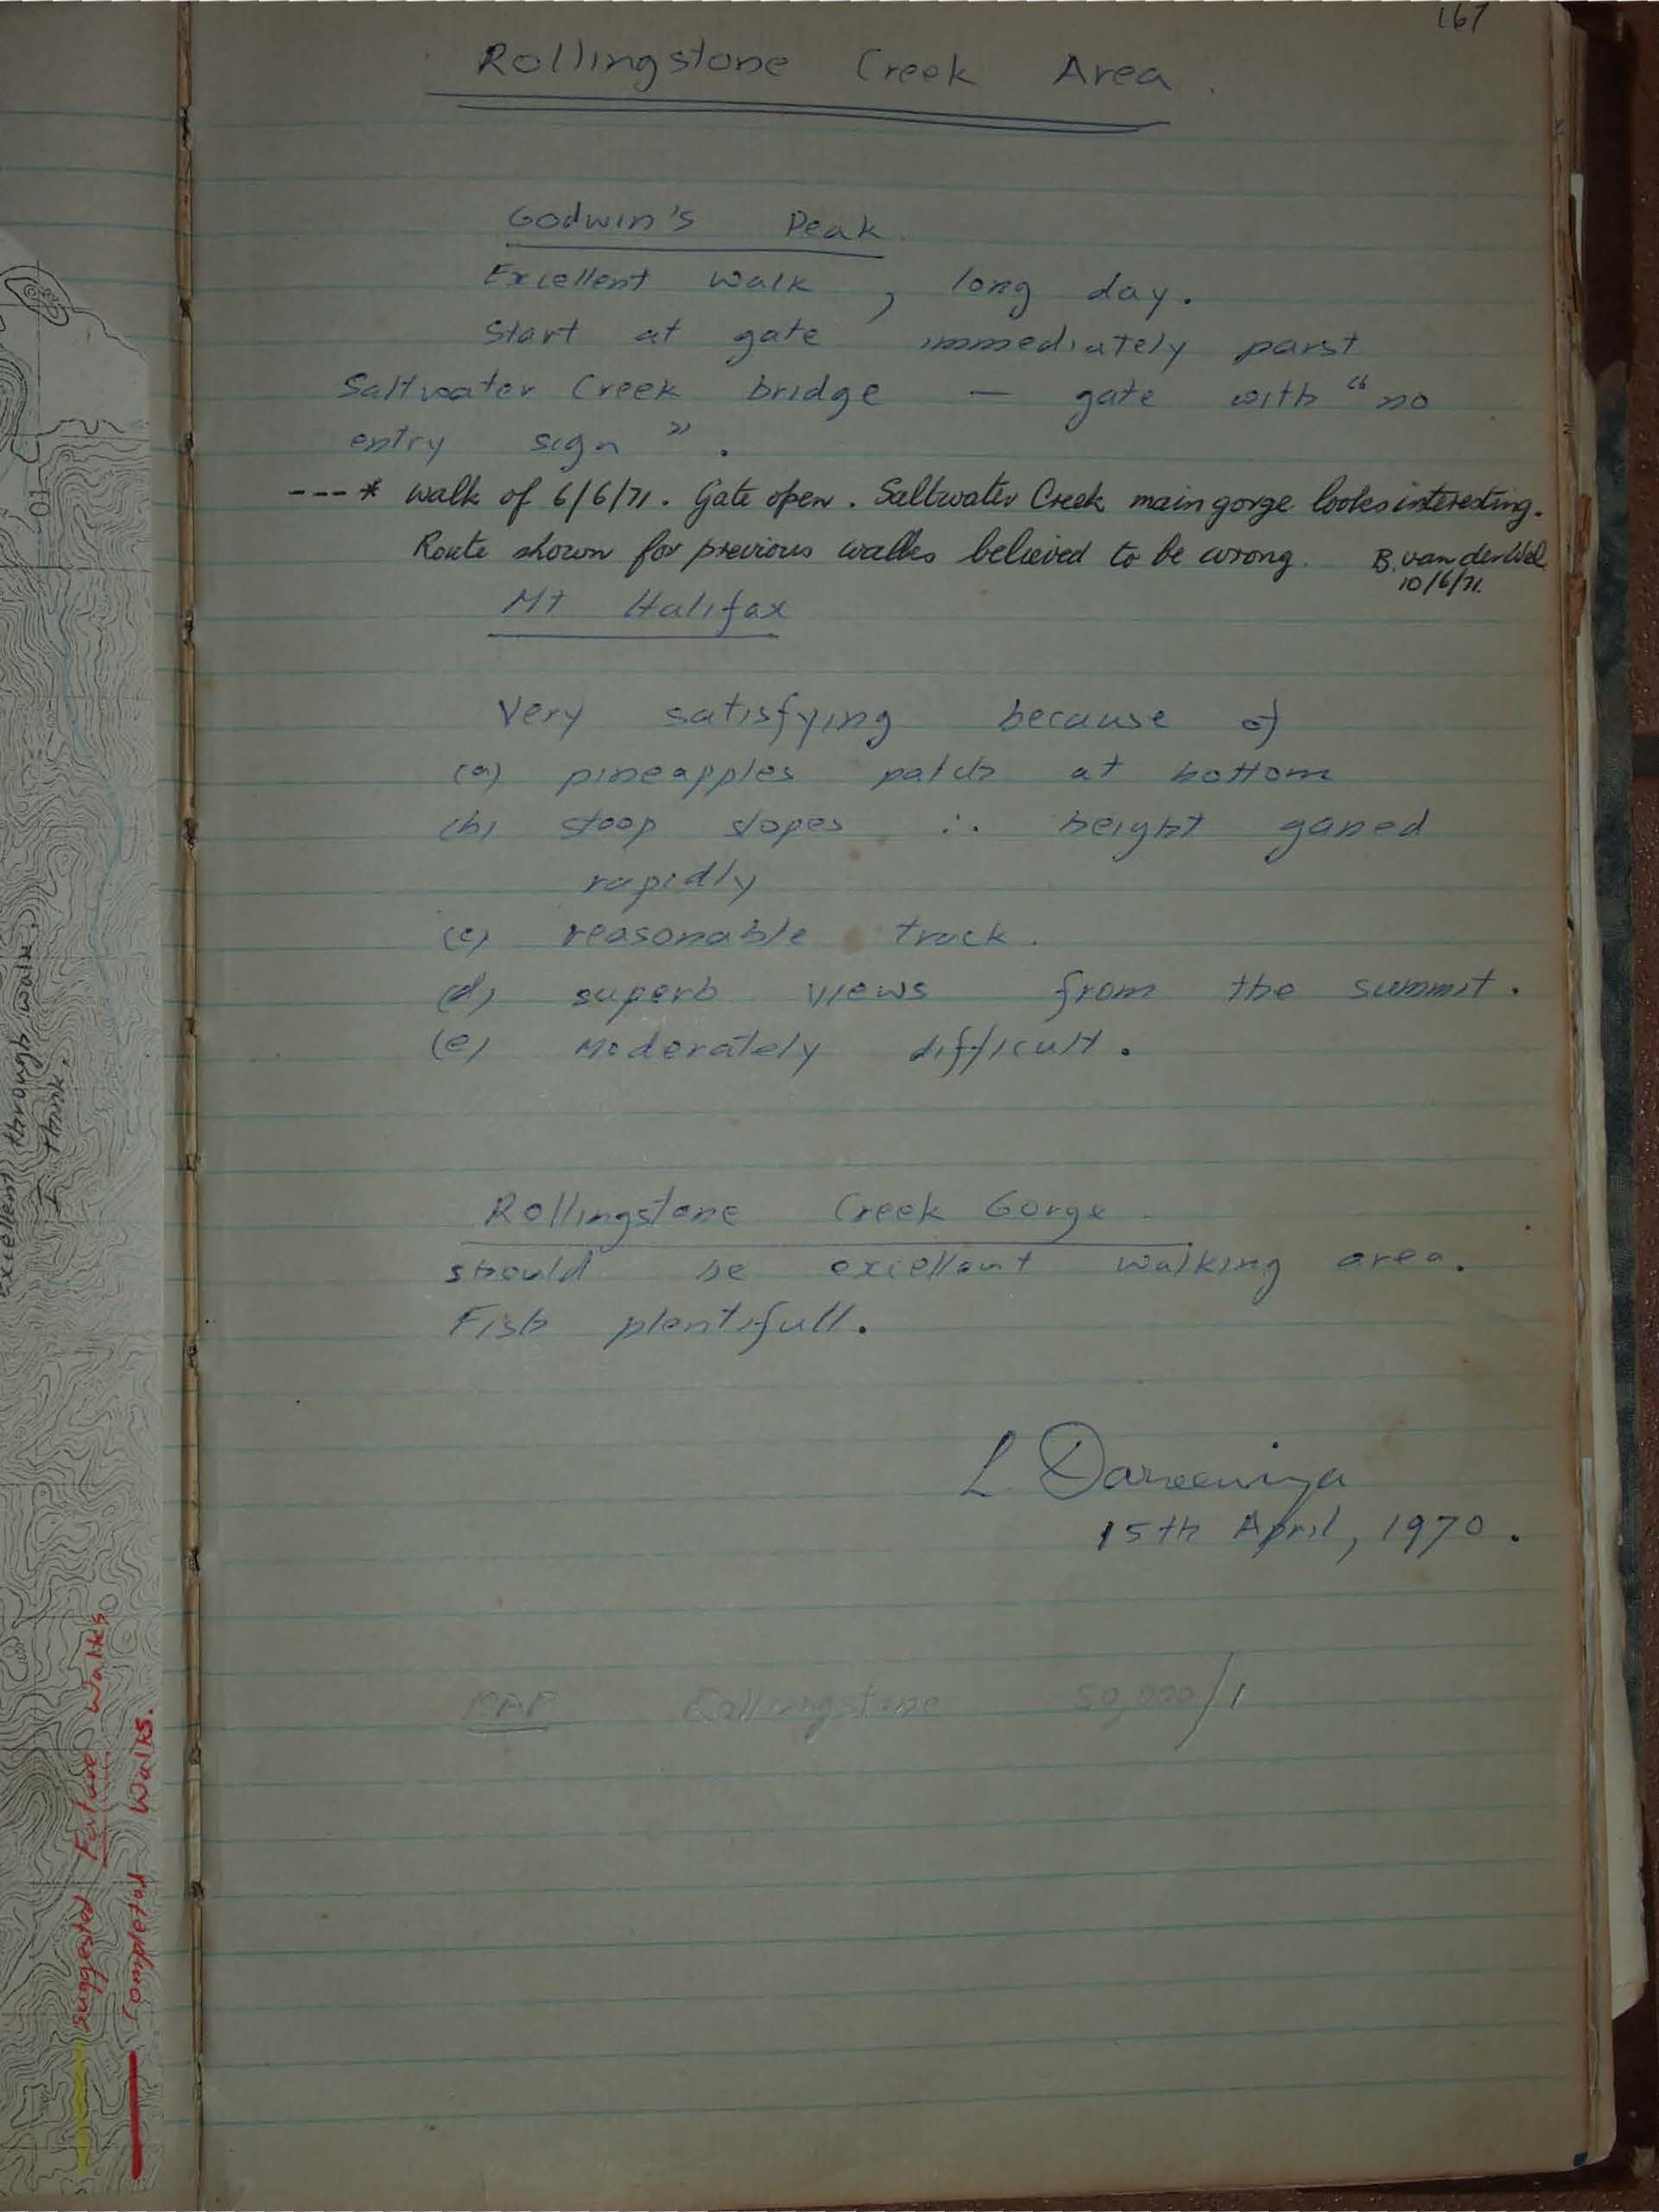 167
Rollingstone Creek Area.
Godwin's Peak.
Excellent walk, long day.
Start at gate immediately parst
Saltwater Creek bridge — gate with "no
entry sign".
---* walk of 6/6/71. Gate open. Saltwater Creek main gorge looks interesting.
Route shown for previous walks believed to be wrong. B. van der Wel
10/6/71.
Mt Halifax
Very satisfying because of
(a) pineapples patch at bottom
(b) steep slopes ∴ height ganed
rapidly
(c) reasonable track.
(d) superb views from the summit.
(e) Moderately difficult.
Rollingstone Creek Gorge.
should be excellent walking area.
Fish plentifull.
L. Darveniza
15th April, 1970.
MAP Rollingstone 50,000/1
excellent through walk,
I think.
01
suggested Future Walks
Completed Walks.